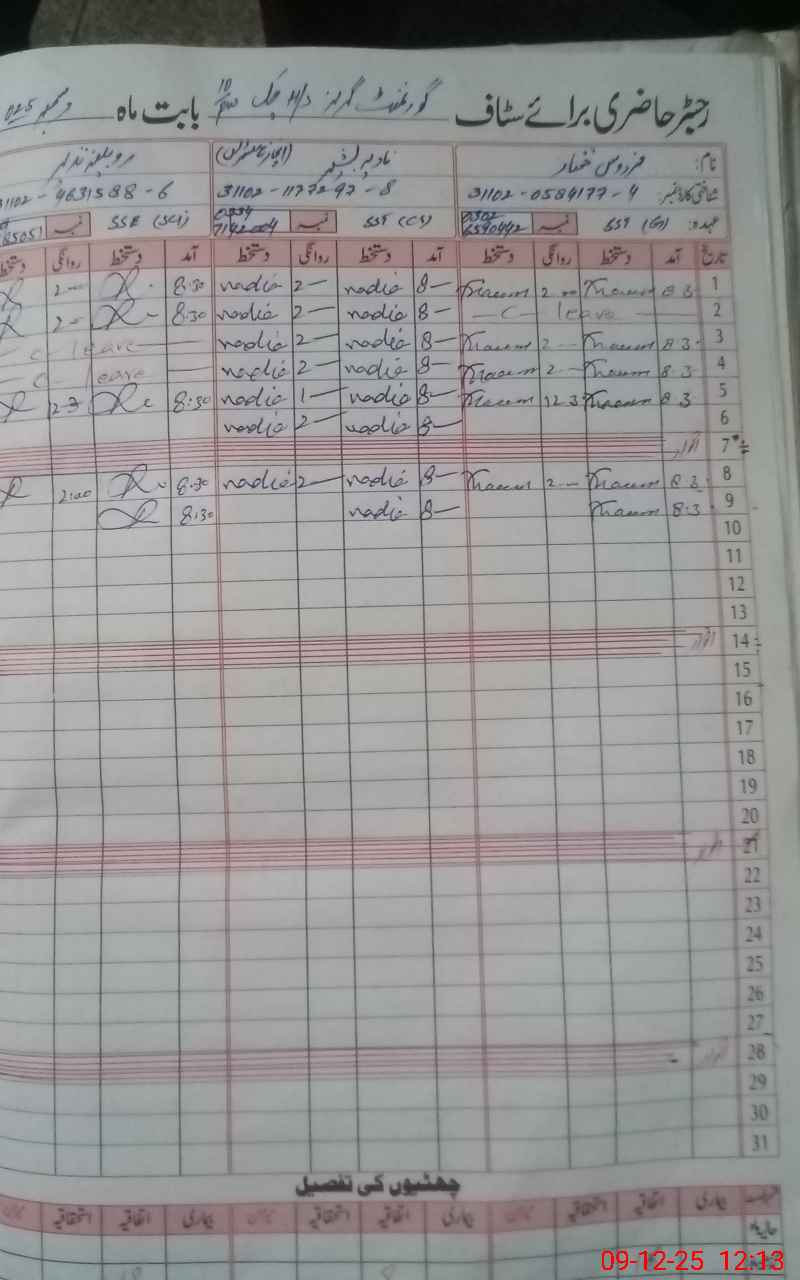 رجسٹر حاضری برائے سٹاف گورنمنٹ گرلز بابت ماہ دسمبر 025
نام: فردوس غفار نادیہ بشیر (انچارج ہیڈمسٹریس) روبینہ نذیر
شناختی کارڈ نمبر: 31102-0584177-4 31102-1177297-8 31102-4631588-6
عہدہ: SST (G) نمبر 0302 6590442 SST (CS) نمبر 0334 SSE (Sci) نمبر 85051
تاریخ آمد دستخط روانگی دستخط آمد دستخط روانگی دستخط آمد دستخط روانگی دستخط
1 8.3 2 — nadia 8— nadia 2— 8.30 2—
2 — C — leave — nadia 8— nadia 2— 8.30 2—
3 8.3 2 — nadia 8— nadia 2— — C — leave —
4 8.3 2 — nadia 8— nadia 2— — C — leave —
5 8.3 12.3 nadia 8— nadia 1— 8:30 2.3
6 nadia 8— nadia 2—
7 اتوار
8 8.3 2 — nadia 8— nadia 2— 8.30 2:00
9 8.3 nadia 8— 8:30
10
11
12
13
14 اتوار
15
16
17
18
19
20
21 اتوار
22
23
24
25
26
27
28 اتوار
29
30
31
چھٹیوں کی تفصیل
بیماری اتفاقیہ استحقاقیہ بیماری اتفاقیہ استحقاقیہ بیماری اتفاقیہ استحقاقیہ
حالیہ
09-12-25 12:13